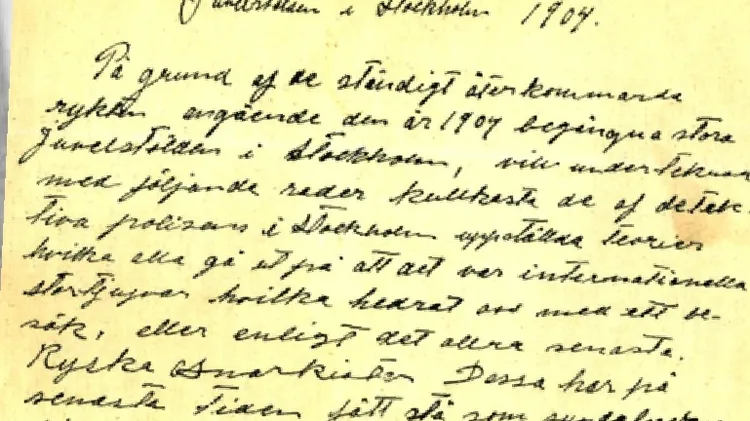 Juvelstölden i Stockholm 1907.
På grund af de ständigt återkommande
rykten angående den år 1907 begångna stora
Juvelstölden i Stockholm, vill undertecknad
med följande rader kullkasta de af detek-
tiva polisens i Stockholm uppställda teorier
hvilka alla gå ut på att det var internationella
stortjuvar hvilka hedrat oss med ett be-
sök, eller enligt det allra senaste.
Ryska Anarkister. Dessa har på
senaste tiden fått stå som